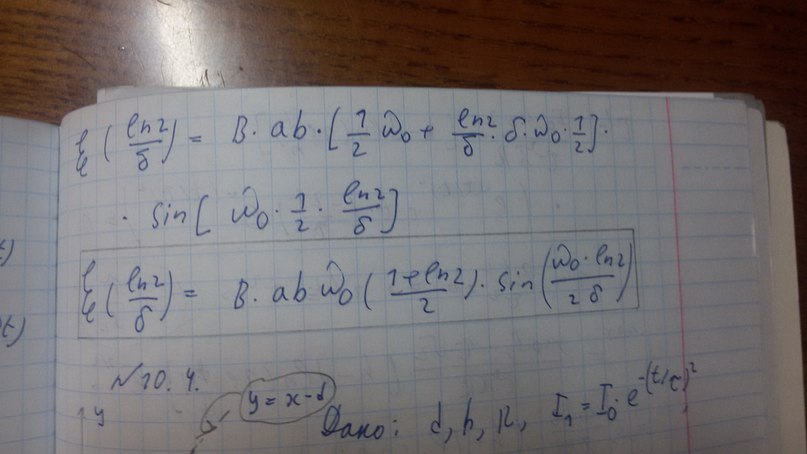 ξ(ln2/δ) = B·ab·[1/2 ω₀ + ln2/δ·δ·ω₀·1/2]·
· sin[ω₀·1/2·ln2/δ]
ξ(ln2/δ) = B·ab ω₀((1+ln2)/2)·sin((ω₀·ln2)/(2δ))
№10.4.
y = x-d
y
Дано: d, h, R, I₁ = I₀·e^-(t/τ)²,